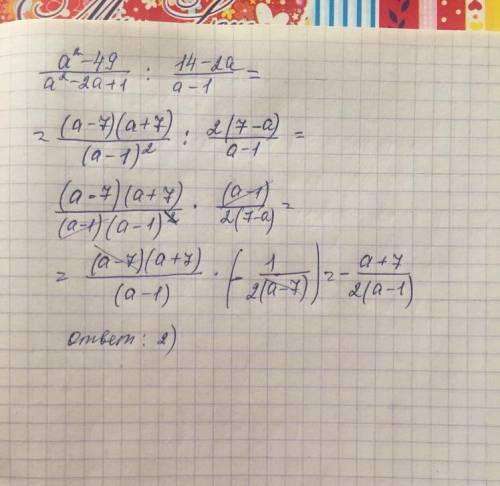 a²-49 / a²-2a+1 : 14-2a / a-1 =
= (a-7)(a+7) / (a-1)² : 2(7-a) / a-1 =
(a-7)(a+7) / (a-1)(a-1)² · (a-1) / 2(7-a) =
= (a-7)(a+7) / (a-1) · (- 1 / 2(a-7)) = - a+7 / 2(a-1)
ответ: 2)